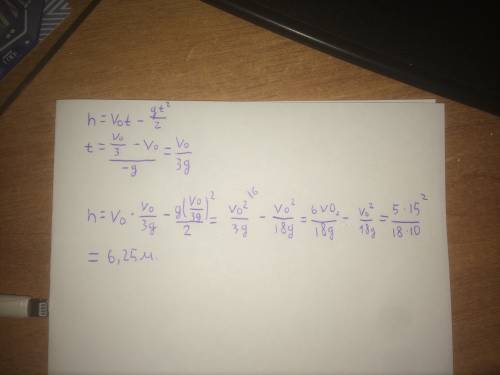 h = v₀t − gt²/2
t = (v₀/3 − v₀)/(−g) = v₀/3g
h = v₀ · v₀/3g − g(v₀/3g)²/2 = v₀²/3g ^16 − v₀²/18g = 6v0₂/18g − v₀²/18g = 5·15²/18·10
= 6,25м.